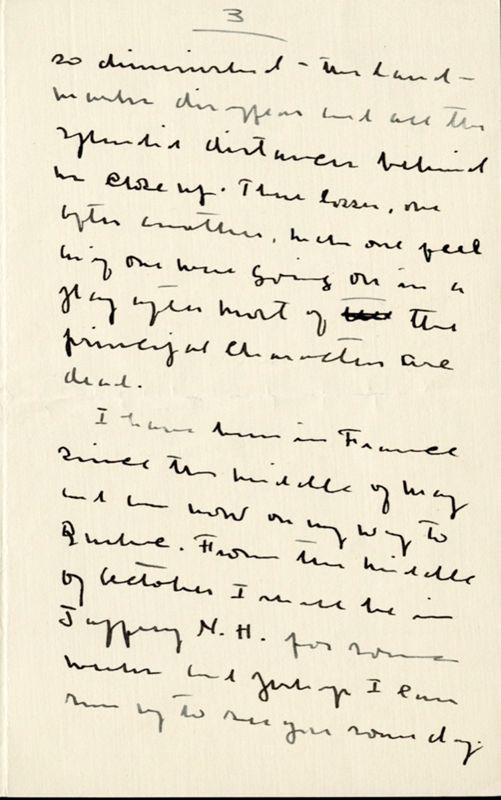 3
so diminished - the land-
marks disappear and all the
splendid distances behind
us close up. These losses, one
after another, make one feel
as if one were going on in a
play after most of the
principal characters are
dead.
I have been in France
since the middle of May
and am now on my way to
Quebec. From the middle
of October I shall be in
Jaffrey N.H. for some
weeks and perhaps I can
run up to see you some day.